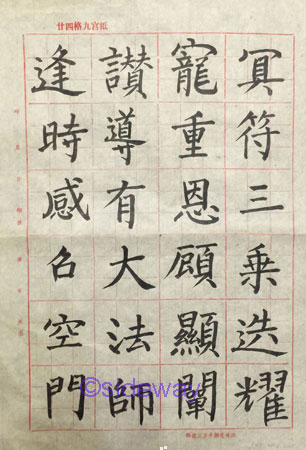 廿四格九宮紙
冥符三乘迭耀
寵重恩顧顯闡
讚導有大法師
逢時感召空門